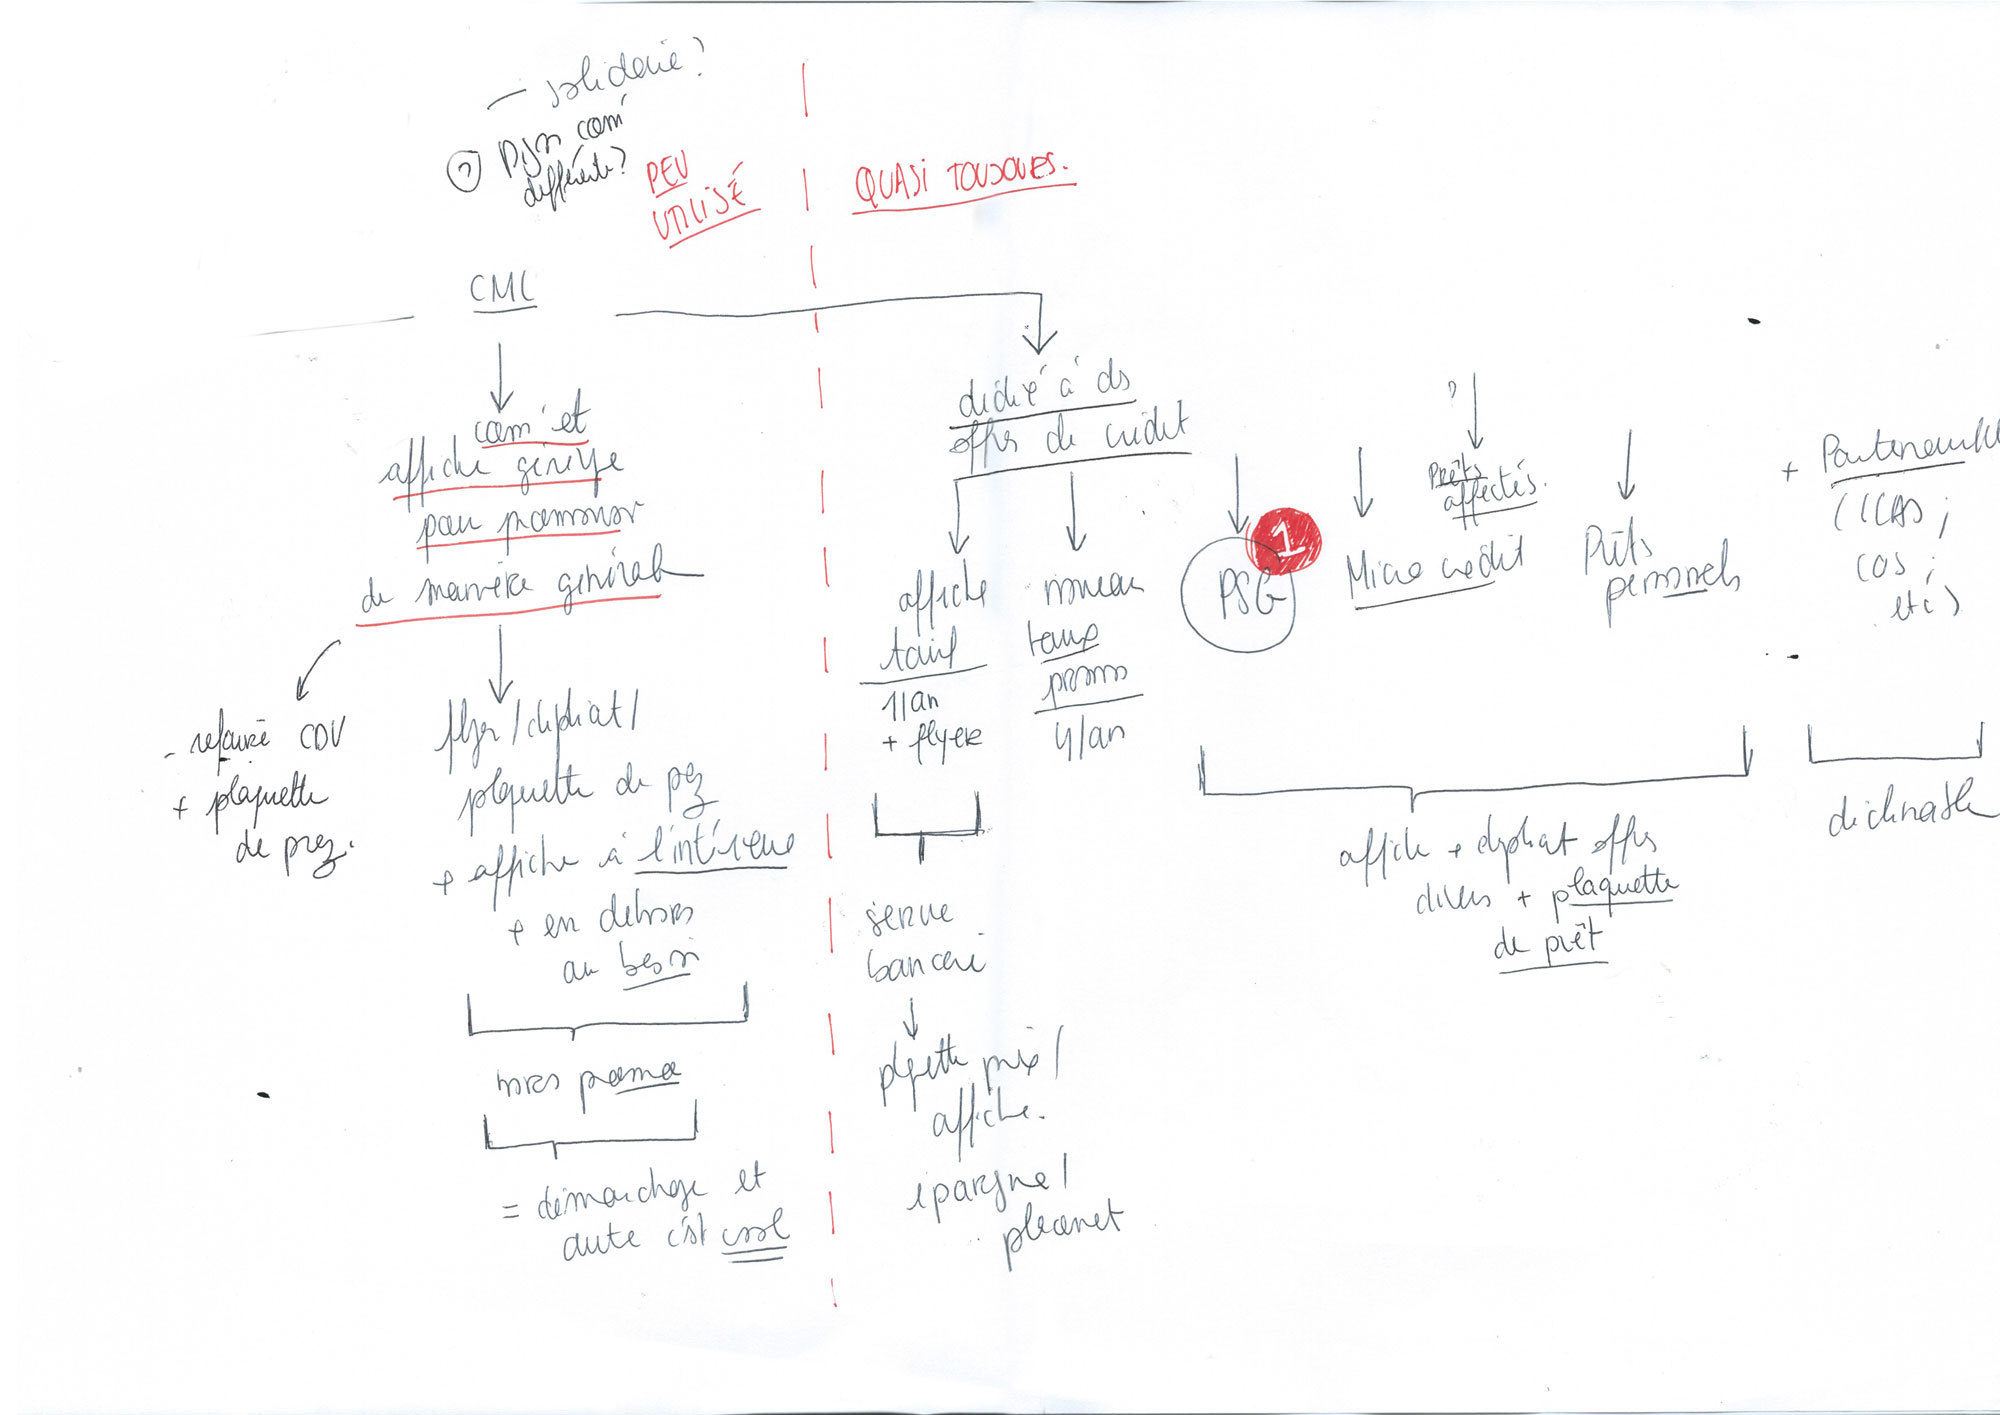 — solidaire?
? Dijon com'
différente?
PEU
UTILISÉ
QUASI TOUJOURS.
CMC
com' et
affiche générique
pour promouvoir
de manière générale
- refaire CDV
+ plaquette
de prez.
flyer/dépliant/
plaquette de prez
+ affiche à l'intérieur
+ en dehors
au besoin
hors promo
= démarchage et
autre c'est cool
dédié à ds
offres de crédit
affiche
tarif
1/an
+ flyer
niveau
taux
promo
4/an
service
bancaire
plaquette prix/
affiche.
épargne/
PSG
1
Micro crédit
Prêts
affectés.
Prêts
personnels
+ Partenariat
(CCAS;
COS;
etc)
affiche + dépliant offres
divers + plaquette
de prêt
déclinable